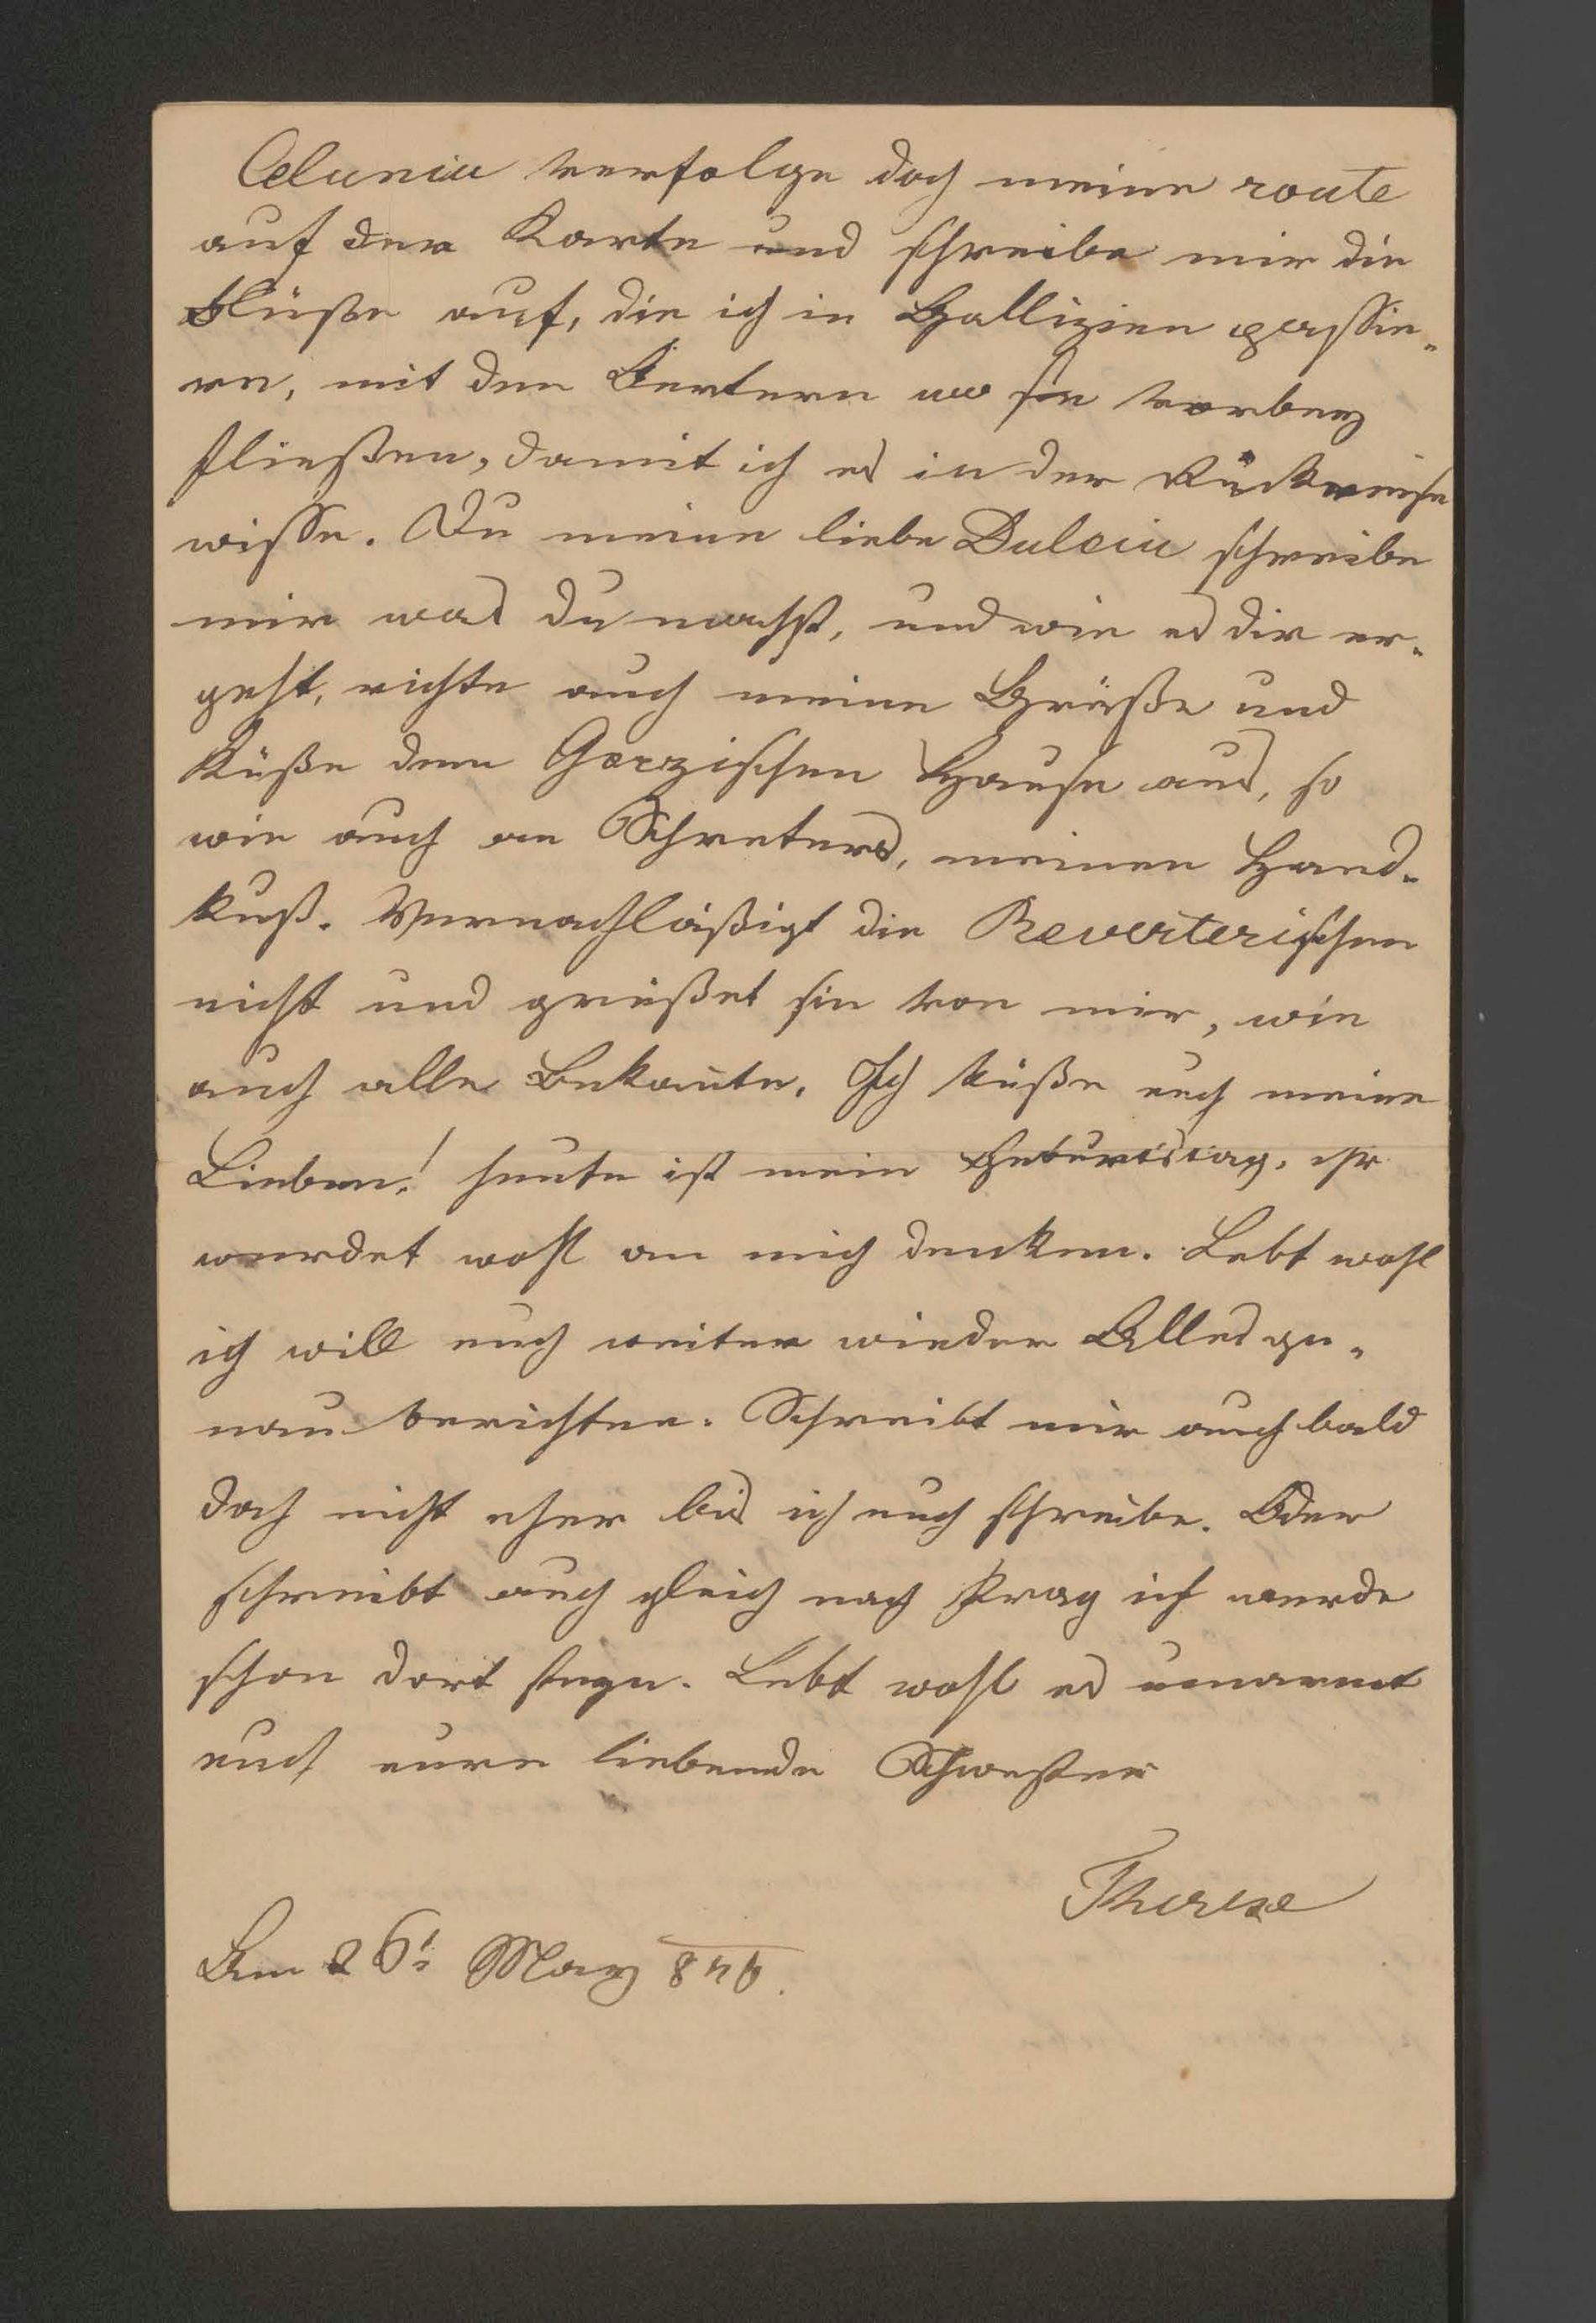 Celunia verfolge doch meine route
auf der Karte und schreibe mir die
Flüße auf, die ich in Gallizien passie-
re, mit den Oertern wo sie vorbey
fließen, damit ich es in der Rückreise
wisse. Du meine liebe Dulcia schreibe
mir was du machst, und wie es dir er-
geht, richte auch meine Grüße und
Küße dem Gorzischen Hause aus, so
wie auch an Schreters, meinen Hand-
kuß. Vernachläßigt die Reverterischen
nicht und grüßet sie von mir, wie
auch alle Bekan̄te. Ich küße euch meine
Lieben! heute ist mein Geburtstag, ihr
werdet wohl an mich denken. Lebt wohl
ich will euch weiter wieder Alles ge-
nau berichten. Schreibt mir auch bald
doch nicht eher bis ich euch schreibe. Oder
schreibt auch gleich nach Prag ich werde
schon dort seyn. Lebt wohl es umarmt
euch eure liebende Schwester
Therese
Am 26t May 846.